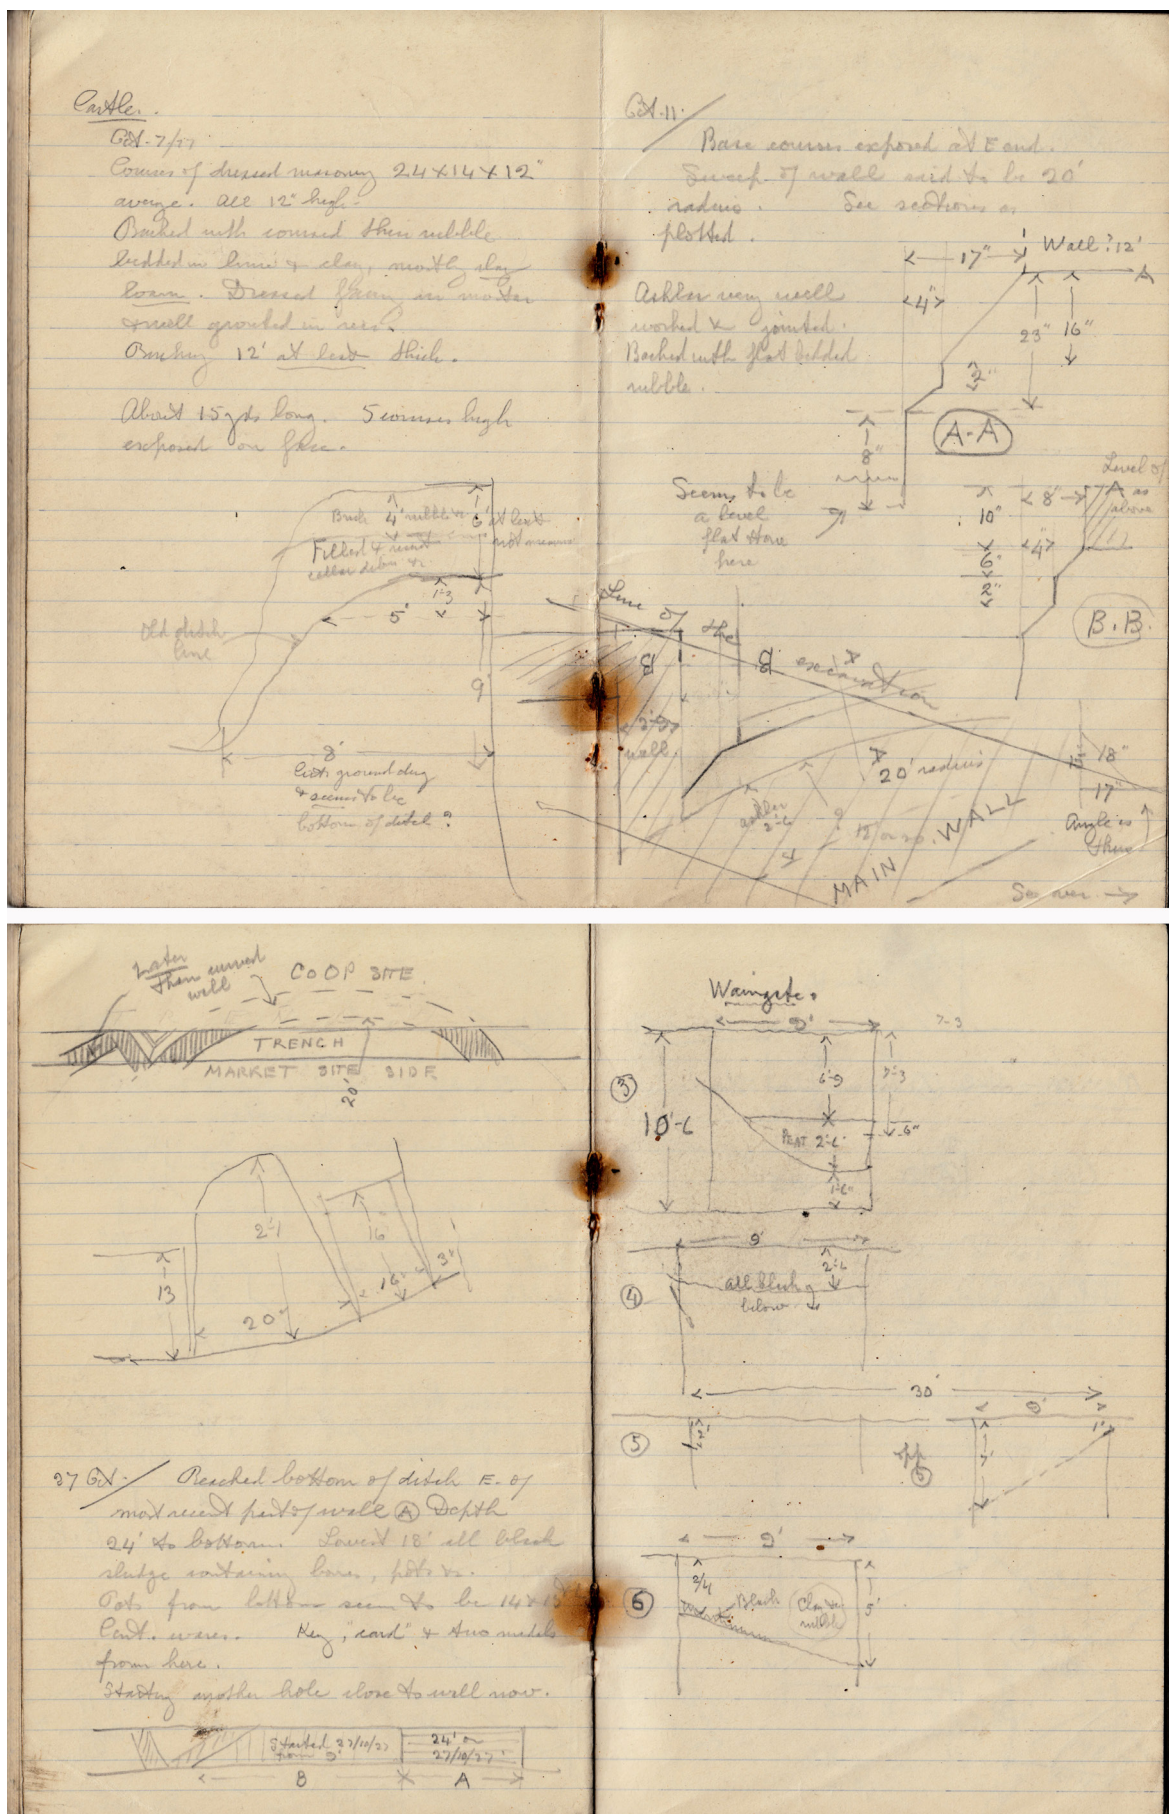 Castle.
Oct. 7/27
Courses of dressed masonry 24 x 14 x 12"
average. All 12" high.
Backed with coursed then rubble
bedded in lime & clay, mostly clay
loam. Dressed facing in mortar
& well grouted in
Backing 12' at least thick.
About 15 yds long. 5 courses high
exposed on face.
Brick 4' rubble & 6' at least
not means
Filled & recent
cellar debris &c
1-3
5'
Old ditch
line
9'
8'
Cuts ground dug
& seems to be
bottom of ditch?
Oct. 11.
Base courses exposed at E end.
Sweep of wall said to be 20'
radius. See sections as
plotted.
17" Wall? 12'
A
Ashlar very well
worked & jointed.
Backed with flat bedded
rubble.
4"
23" 16"
2"
A-A
8"
Seems to be
a level
flat stone
here
Level of
A as
above
10" 8"
4"
6"
2"
B.B.
Line of the excavation
B B
wall
20' radius
ashlar
2-6
?
12 or so.
MAIN WALL
18"
17"
Angle is
thus
See over →
Later
than curved
wall
COOP SITE
TRENCH
MARKET SITE SIDE
20'
2-1
16"
13
20"
16"
3"
27 Oct. Reached bottom of ditch E. of
most recent part of wall A Depth
24' to bottom. Lowest 18' all black
sludge containing bones, pots &c.
Pots from bottom seem to be 14 & 15
Cent. wares. Key, "card" & two medals
from here.
Starting another hole close to wall now.
Started 27/10/27
from 9'
24' on
27/10/27
B A
Waingate.
7-3
9'
3
10-6
6-9
7-3
PEAT 2-6
6"
1-6"
9'
2-6
4
all black
below
30'
9'
5
2'
opp
5
7'
1'
9'
6
2/4
Black
Clay &
rubble
5'